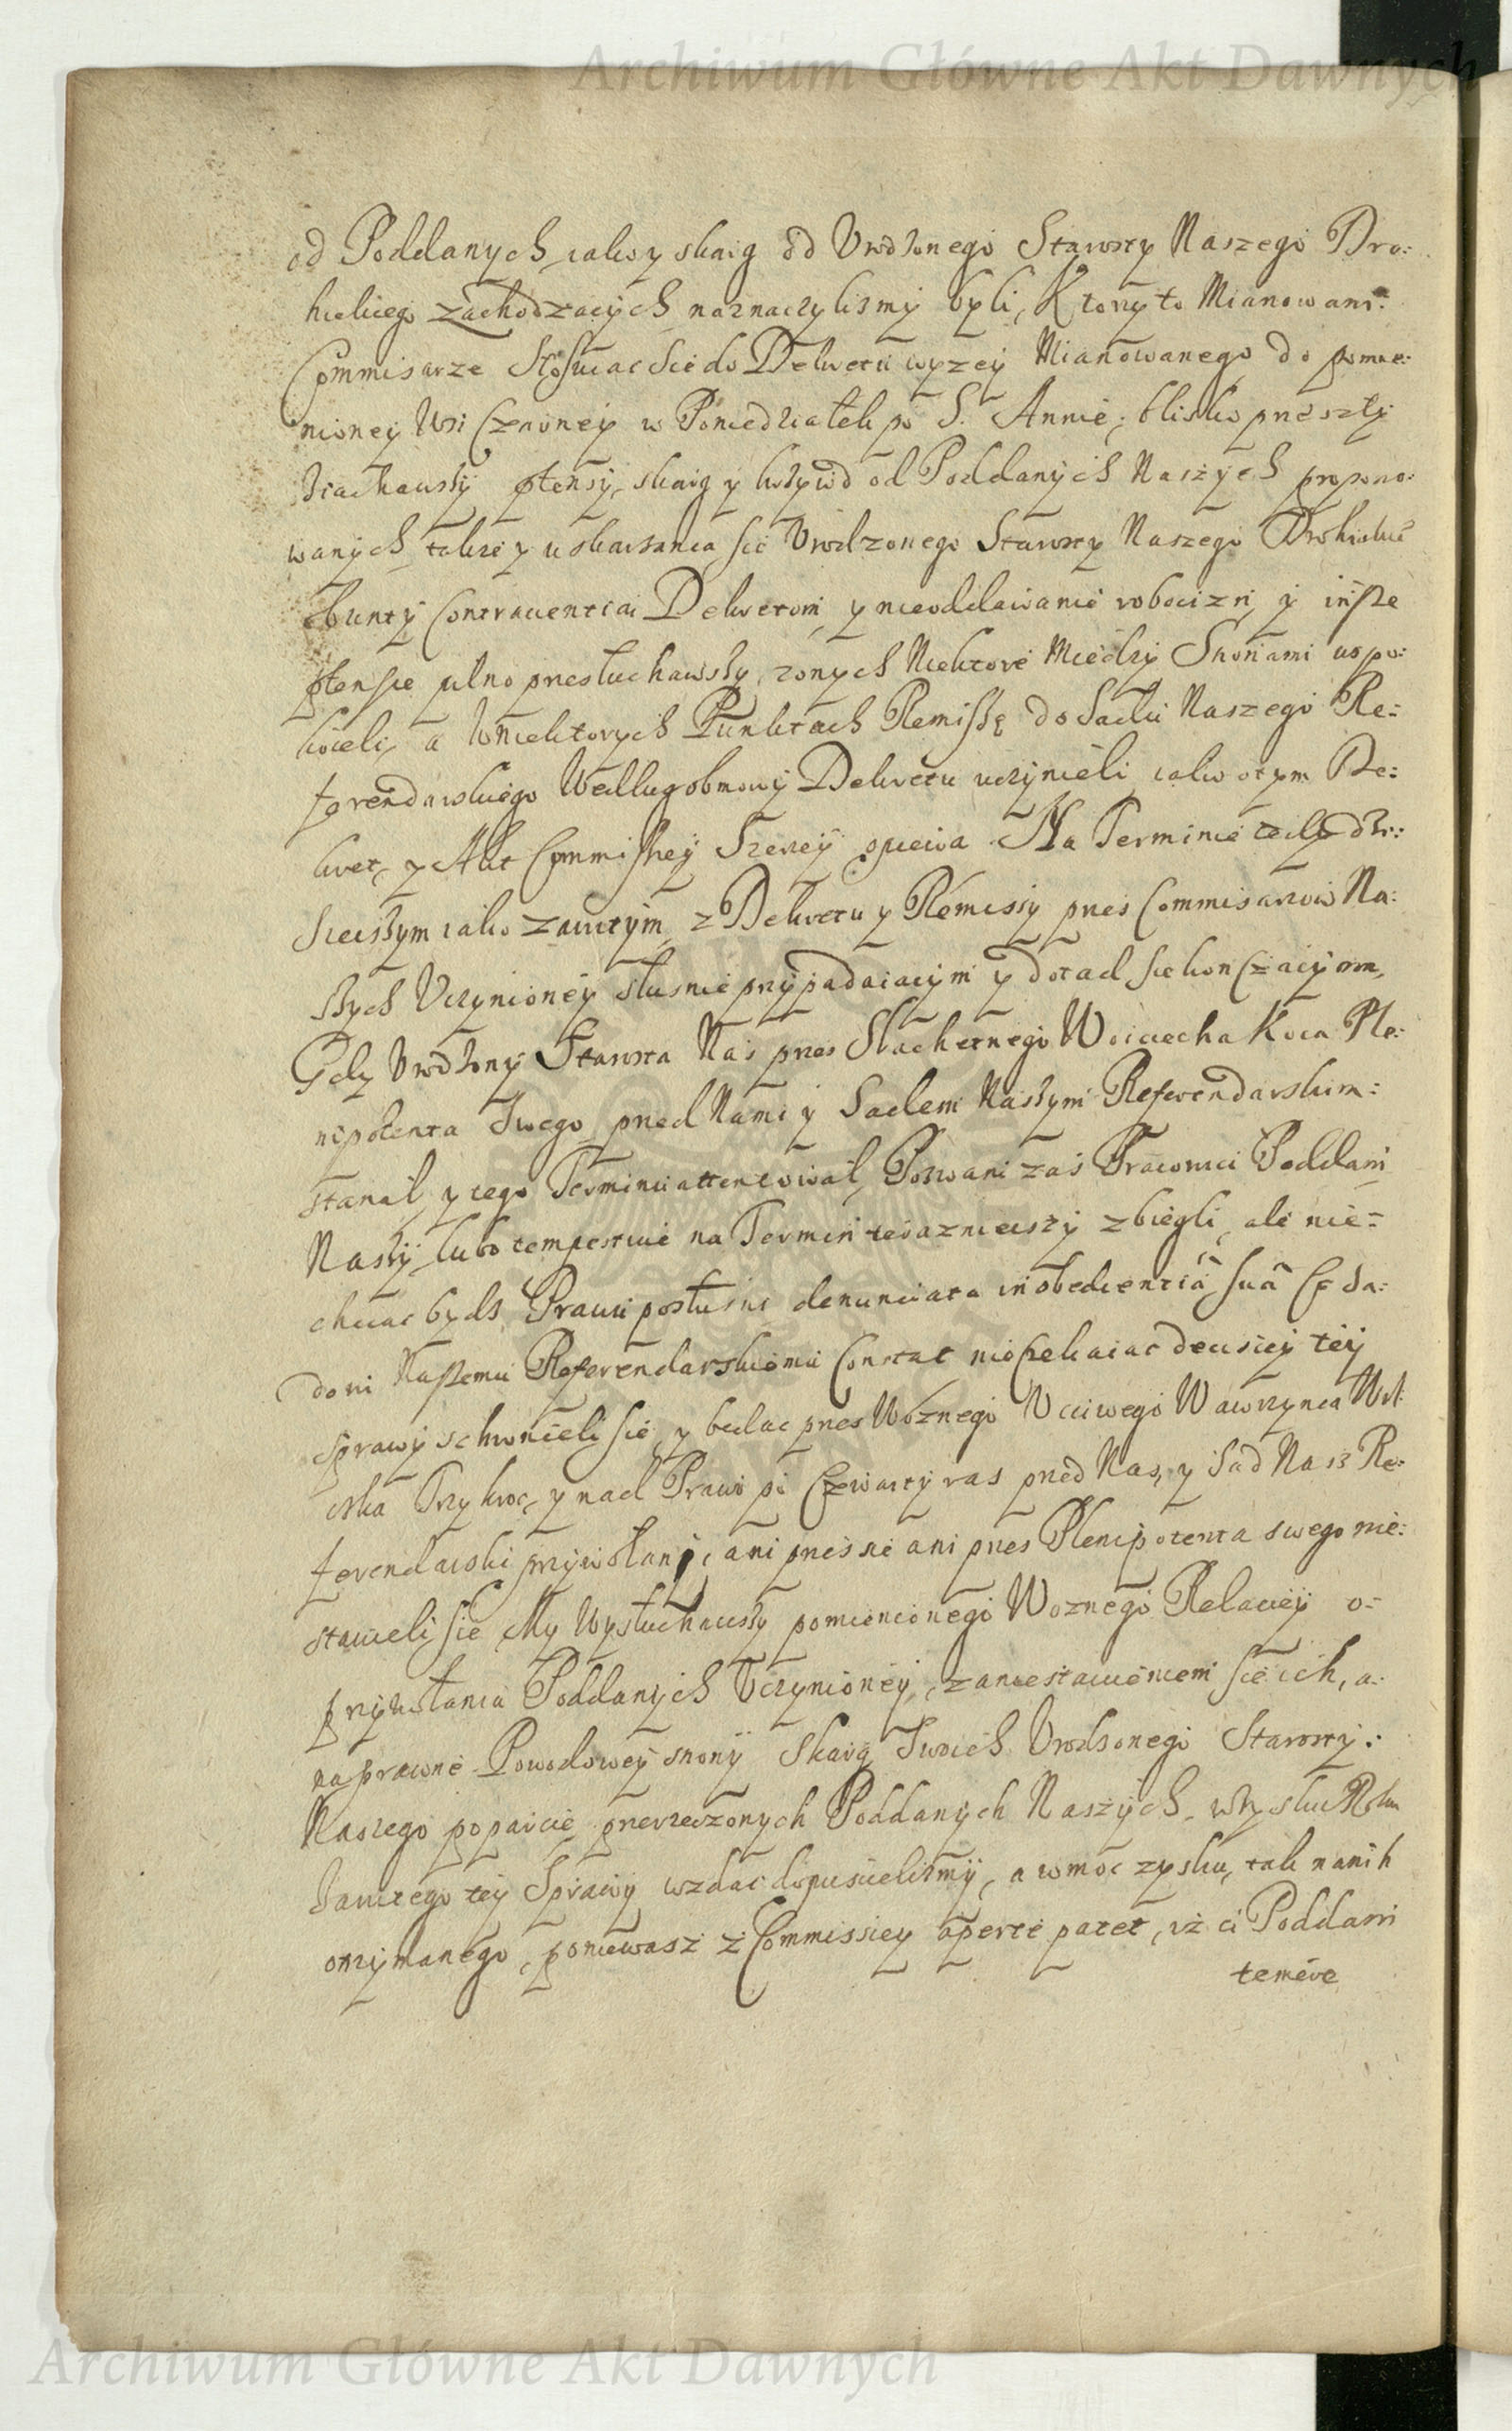 Archiwum Główne Akt Dawnych
od Poddanych iako y skarg od Urodzonego Starosty Naszego Dro:
hickiego zachodzących naznaczylismy byli, Ktorzy to Mianowani
Commisarze Stosuiac Sie do Dekretu wyzey Mianowanego do pomie:
nioney Wsi Czarney w Poniedziałek po S. Annie, blisko przeszły
Ziachawszy ptensy, skarg y krzywd od Poddanych Naszych propono:
wanych, takze y uskarzania sie Urodzonego Starosty Naszego
o bunty Contrauentia Dekretom y nieoddawanie robocizn, y insze
ptensie pilno przesłuchawszy, z onych Niektore Miedzy Stronami uspo:
koieli, a w Niektorych Punktach Remissę do Sadu Naszego Re:
ferendarskiego Według obmowy Dekretu uczynieli, iako o tym De:
kret, y Akt Commissyey Szerzey opiewa. Na Terminie tedy dzi:
sieiszym iako zawitym, z Dekretu y Remissy przes Commisarzow Na:
szych Uczynioney słusnie przypadaiacym y dotad sie konczacym,
Gdy Urodzony Starosta Nas przes Slachetnego Woiciecha Koca Ple:
nipotenta Swego przed Nami y Sadem Naszym Referendarskim:
stanał, y tego Terminu attentował, Pozwani zas Pracowici Poddani
Naszy, lubo tempestiue na Termin teraznieiszy zbiegli, ale nie:
chcac bydz Prawu posłusni denunciata inobedientiâ suâ
dowi Naszemu Referendarskiemu Constat nie czekaiac decisiey tey
sprawy schronieli sie, y bedac przes Woznego Uczciwego Wawrzynca
Trzykroc, y nad Prawo po czwarty ras przed Nas, y Sad Nasz Re:
ferendarski przywołani, ani przes sie ani przes Plenipotenta swego nie:
stawieli sie My Wysłuchawszy pomienionego Woznego Relaciey o:
przywołaniu Poddanych Uczynioney, za niestawieniem sie ich, a:
na prawne Powodowey strony Skarg Swoich Urodzonego Starosty:
Naszego poparcie przerzeczonych Poddanych Naszych w zysku Roku
Zawitego tey Sprawy wzdac dopuscielismy, a w moc zysku, tak na nich
otrzymanego, poniewasz z Commissiey aperte patet, iż ci Poddani
temere
Archiwum Główne Akt Dawnych